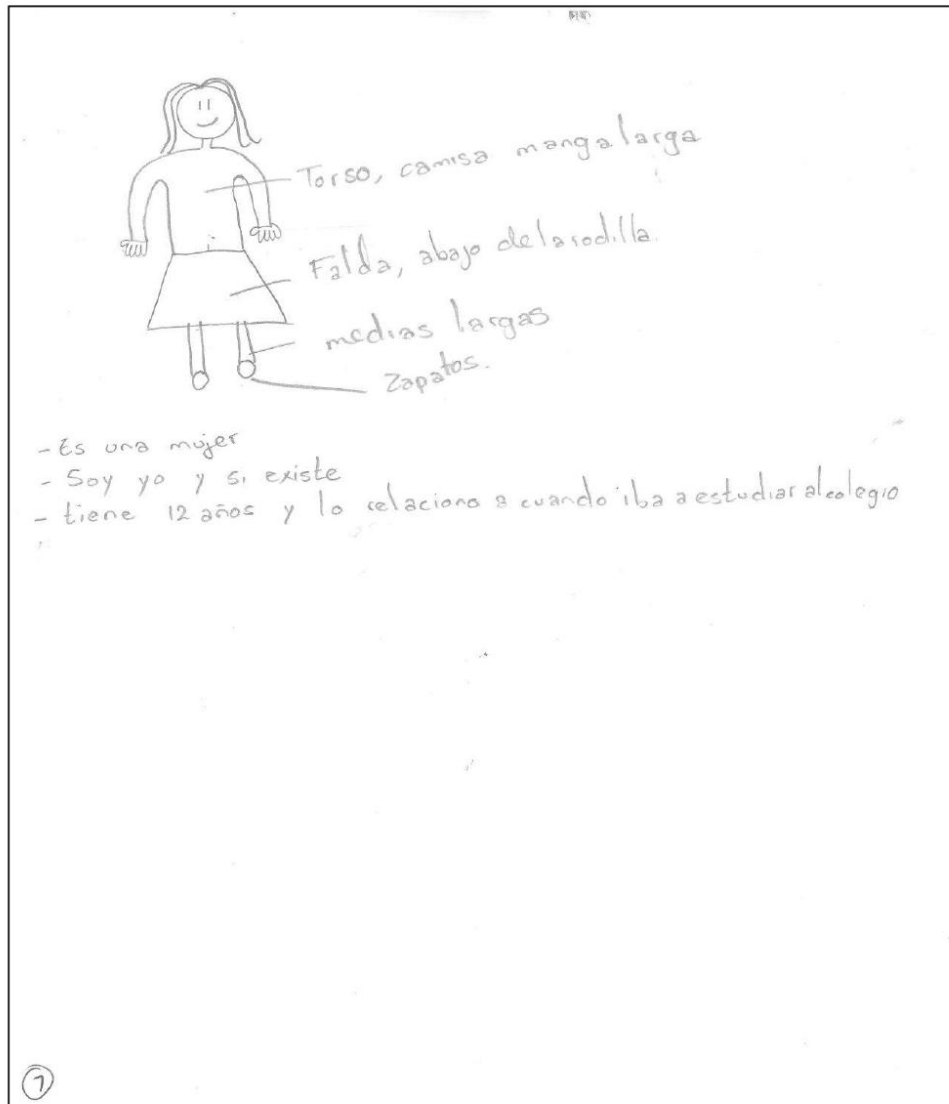 Torso, camisa manga larga
Falda, abajo de la rodilla.
medias largas
Zapatos.
- Es una mujer
- Soy yo y si existe
- tiene 12 años y lo relaciono a cuando iba a estudiar al colegio
7